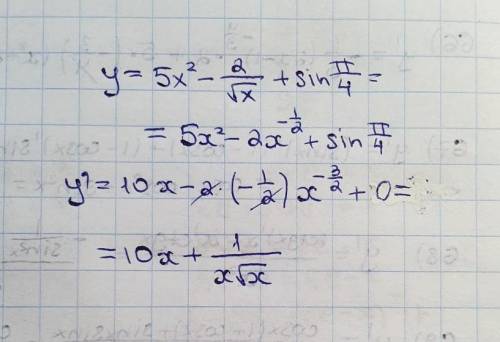 y = 5x² - 2/√x + sin π/4 =
= 5x² - 2x^(-1/2) + sin π/4
y' = 10x - 2 · (-1/2) x^(-3/2) + 0 =
= 10x + 1/(x√x)